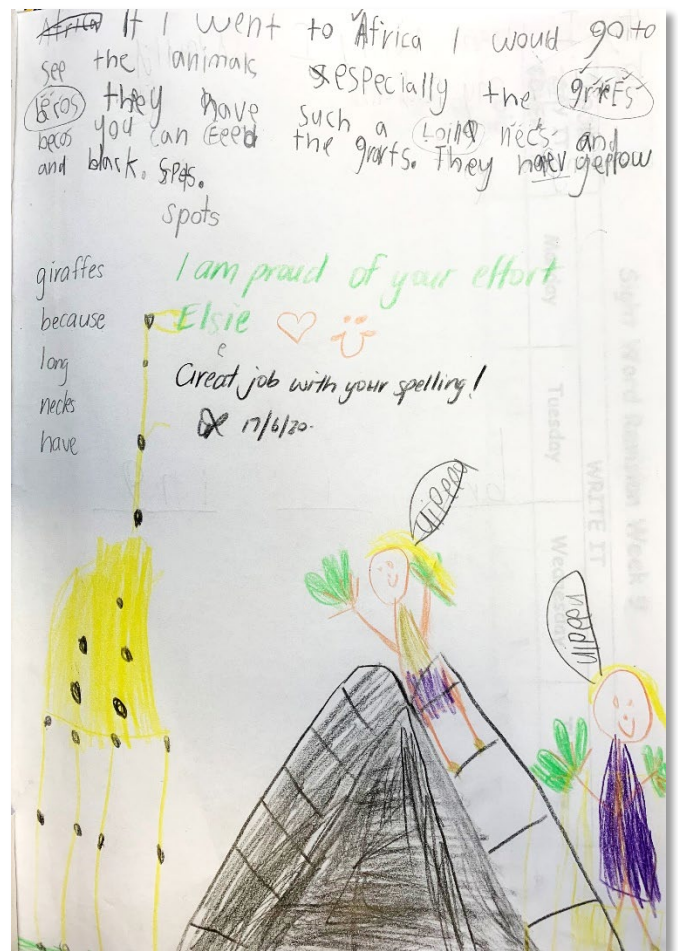 Africa If I went to Africa I would go to
see the animals especially the grieFs
becos they have such a Loing necs and
becos you can Feed the grarfs. They haev yellow
and black. Spts.
spots
giraffes
because
long
necks
have
I am proud of your effort
Elsie
e
Great job with your spelling!
17/6/20.
Sight Word Revision Week 9
WRITE IT
Monday
Tuesday
Wednesday